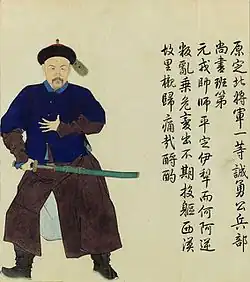 原定北將軍一等誠勇公兵部
尚書班第
元戎帥師平定伊犁而何阿逆
叛亂乘危變出不期投軀西漠
故里櫬歸痛哉酹酌